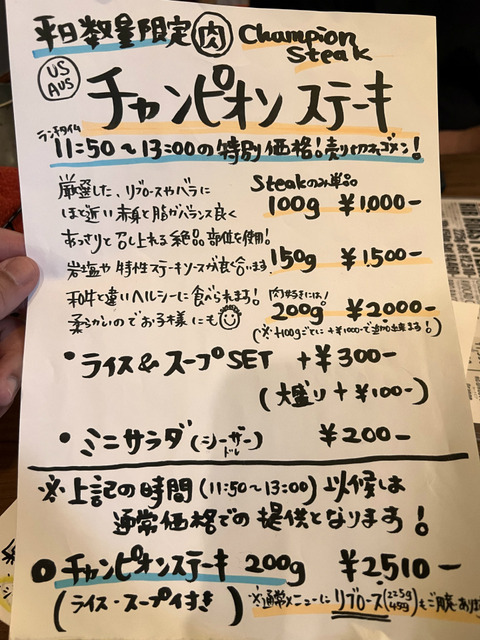 平日数量限定 肉 Champion Steak
US AUS
チャンピオンステーキ
ランチタイム
11:50～13:00の特別価格!売り切れゴメン!
厳選した、リブロースやバラに
ほど近い赤身と脂がバランス良く
あっさりと召し上れる絶品部位を使用!
岩塩や特性ステーキソースが良く合います
和牛と違いヘルシーに食べられます!
柔らかいのでお子様にも
Steakのみ単品
100g ¥1.000-
150g ¥1,500-
肉好きには!
200g ¥2000-
(※+100gごとに+¥1000-で追加出来ます!)
・ライス&スープSET +¥300-
(大盛り+¥100-)
・ミニサラダ(シーザードレ) ¥200-
※上記の時間(11:50～13:00)以候は
通常価格での提供となります!
チャンピオンステーキ 200g ¥2,510-
(ライス・スープ付き)
※通常メニューにリブロース(225g 450g)もご用意あります